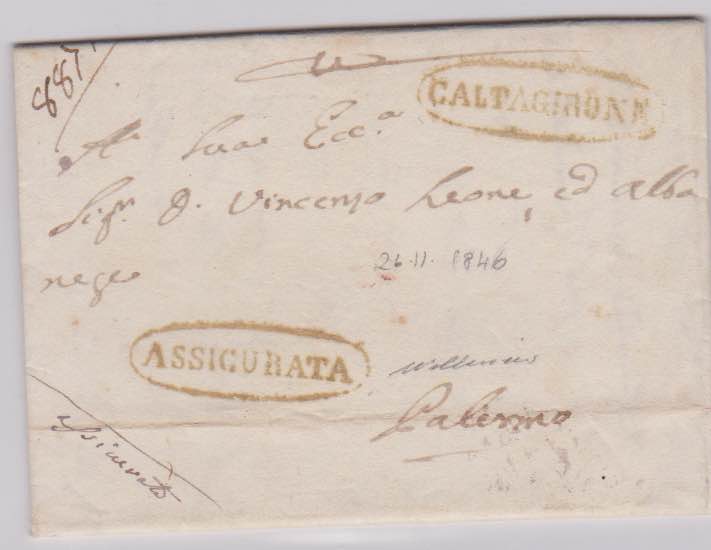 887.
CALTAGIRONE
A Sua Ecc.a
Sig.r D. Vincenzo Leone, ed Alba
nese
26.11.1846
ASSIGURATA
Palermo
Assicurata